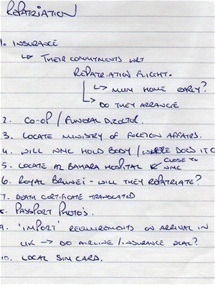 REPATRIATION
1. INSURANCE
↳ THEIR COMMITMENTS WRT
REPATRIATION FLIGHT.
↳ MUM HOME EARLY?
↳ DO THEY ARRANGE
2. CO-OP / FUNERAL DIRECTOR.
3. LOCATE MINISTRY OF FOREIGN AFFAIRS.
4. WILL NMC HOLD BODY / WHERE DOES IT GO
5. LOCATE AL BAHARA HOSPITAL ← CLOSE TO NMC
6. ROYAL BRUNEI - WILL THEY REPATRIATE?
7. DEATH CERTIFICATE TRANSLATED
8. PASSPORT PHOTO'S.
9. 'IMPORT' REQUIREMENTS ON ARRIVAL IN
UK → DO AIRLINE / INSURANCE DEAL?
10. LOCAL SIM CARD.